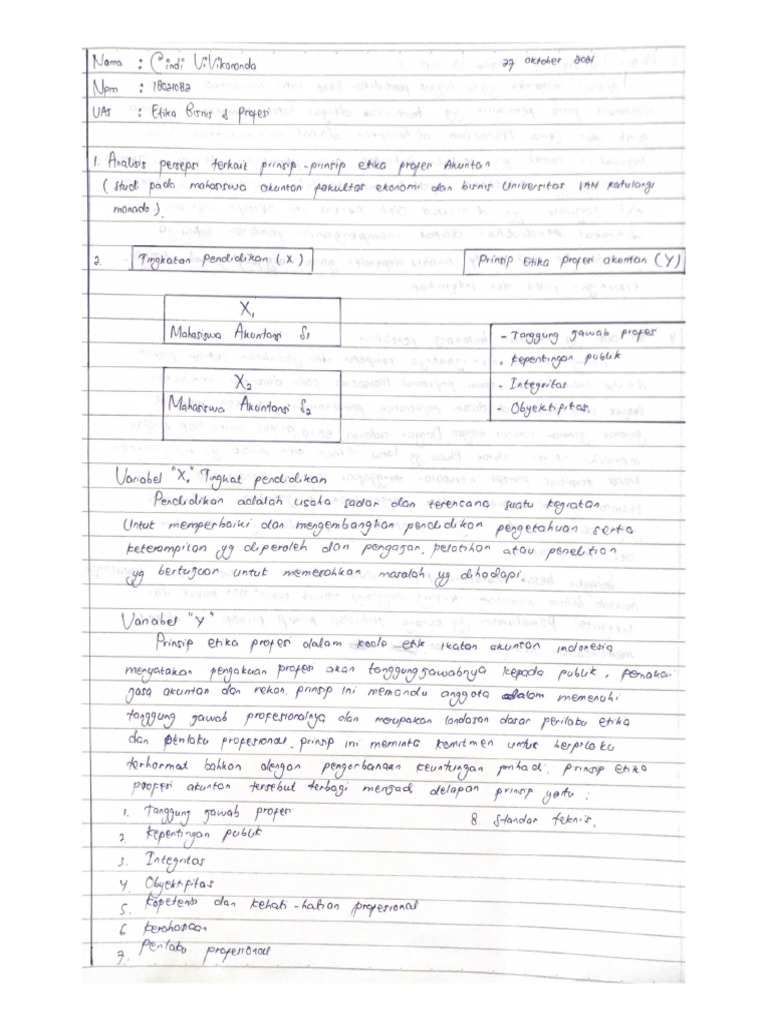 Nama : Cindi ViVikananda 27 Oktober 2021
Npm : 18021082
UAS : Etika Bisnis & Profesi
1. Analisis persepsi terkait prinsip-prinsip etika profesi Akuntan
( Studi pada mahasiswa akuntan fakultas ekonomi dan bisnis Universitas SAM Ratulangi
manado ).
2. Tingkatan Pendidikan ( X ) Prinsip Etika Profesi akuntan ( Y )
X1
Mahasiswa Akuntansi S1
X2
Mahasiswa Akuntansi S2
- Tanggung jawab profesi
. Kepentingan publik
- Integritas
- Obyektifitas.
Variabel "X" Tingkat pendidikan
Pendidikan adalah usaha sadar dan terencana suatu kegiatan
Untuk memperbaiki dan mengembangkan pendidikan pengetahuan serta
keterampilan yg diperoleh dan pengajan, pelatihan atau penelitian
yg bertujuan untuk memecahkan masalah yg dihadapi.
Variabel "Y"
Prinsip etika profesi dalam kode etik ikatan akuntan indonesia
menyatakan pengakuan profesi akan tanggung jawabnya kepada publik, pemakai
jasa akuntan dan rekan. prinsip ini memandu anggota dalam memenuhi
tanggung jawab profesionalnya dan merupakan landasan dasar perilaku etika
dan perilaku profesional. prinsip ini meminta komitmen untuk berprilaku
terhormat bahkan dengan pengorbanan keuntungan pribadi. prinsip etika
profesi akuntan tersebut terbagi menjadi delapan prinsip yaitu :
1. Tanggung jawab profesi 8. Standar teknis.
2. Kepentingan publik
3. Integritas
4. Obyektifitas
5. Kopetensi dan kehati-hatian profesional
6 Kerahasiaan
7. Perilaku profesional